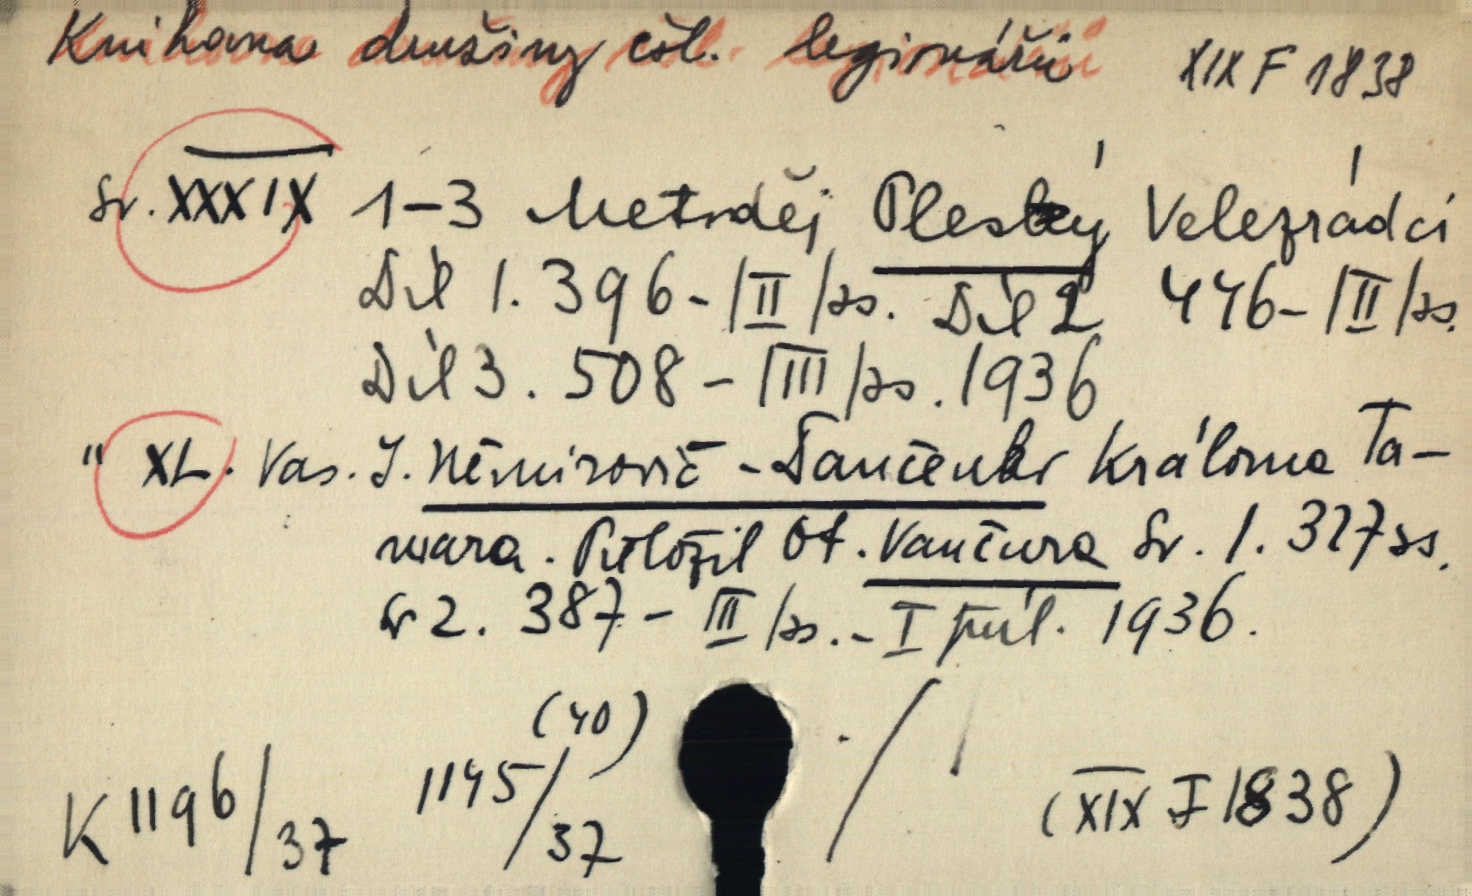 Knihovna družiny čsl. legionářů XIX F 1838
Sv. XXXIX 1-3 Metoděj Pleský Velezrádci
Díl 1. 396-|II|/ss. Díl 2 446-|II|/ss.
Díl 3. 508-|III|/ss. 1936
" XL. Vas. I. Němirovič-Dančenko Králowna Ta-
mara. Přeložil Ot. Vančura Sv. 1. 327 ss.
Sv 2. 387-III/ss.-I příl. 1936.
(40)
K 1196/37 1145/37 ./. (XIX F 1838)